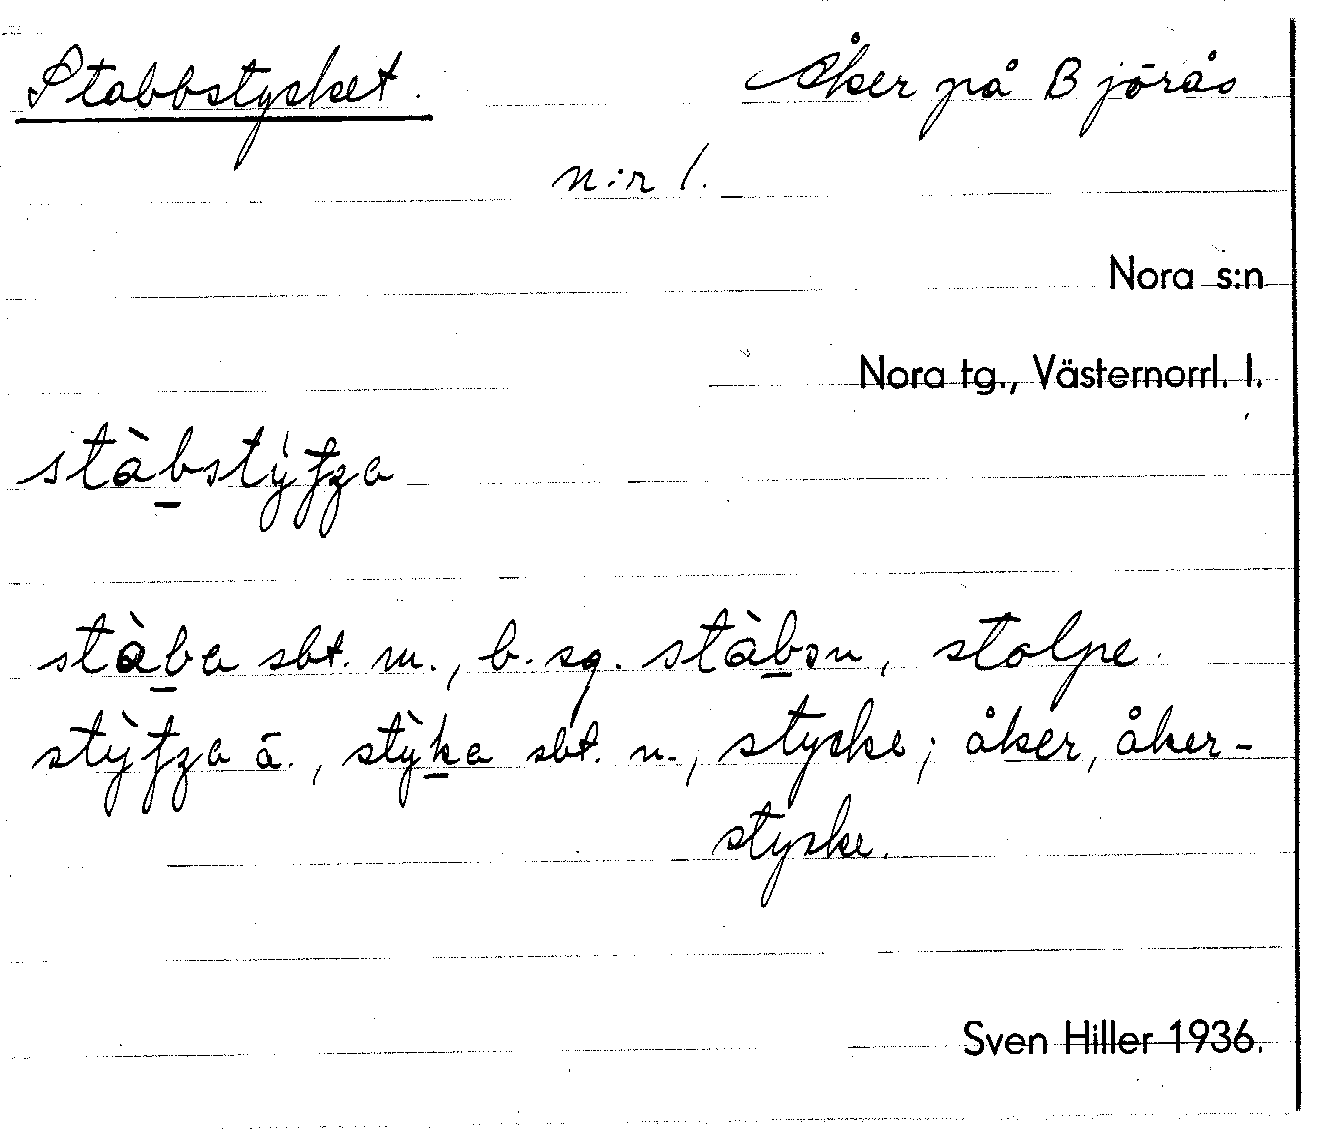 Stabbstycket. Åker på Björås
n:r 1.
Nora s:n
Nora tg., Västernorrl. l.
stàb̲stý̀fza
stàb̲a sbt. m., b. sg. stàb̲ɔn, stolpe.
stỳfza ā., stỳk̲a sbt. n., stycke; åker, åker-
stycke.
Sven Hiller 1936.